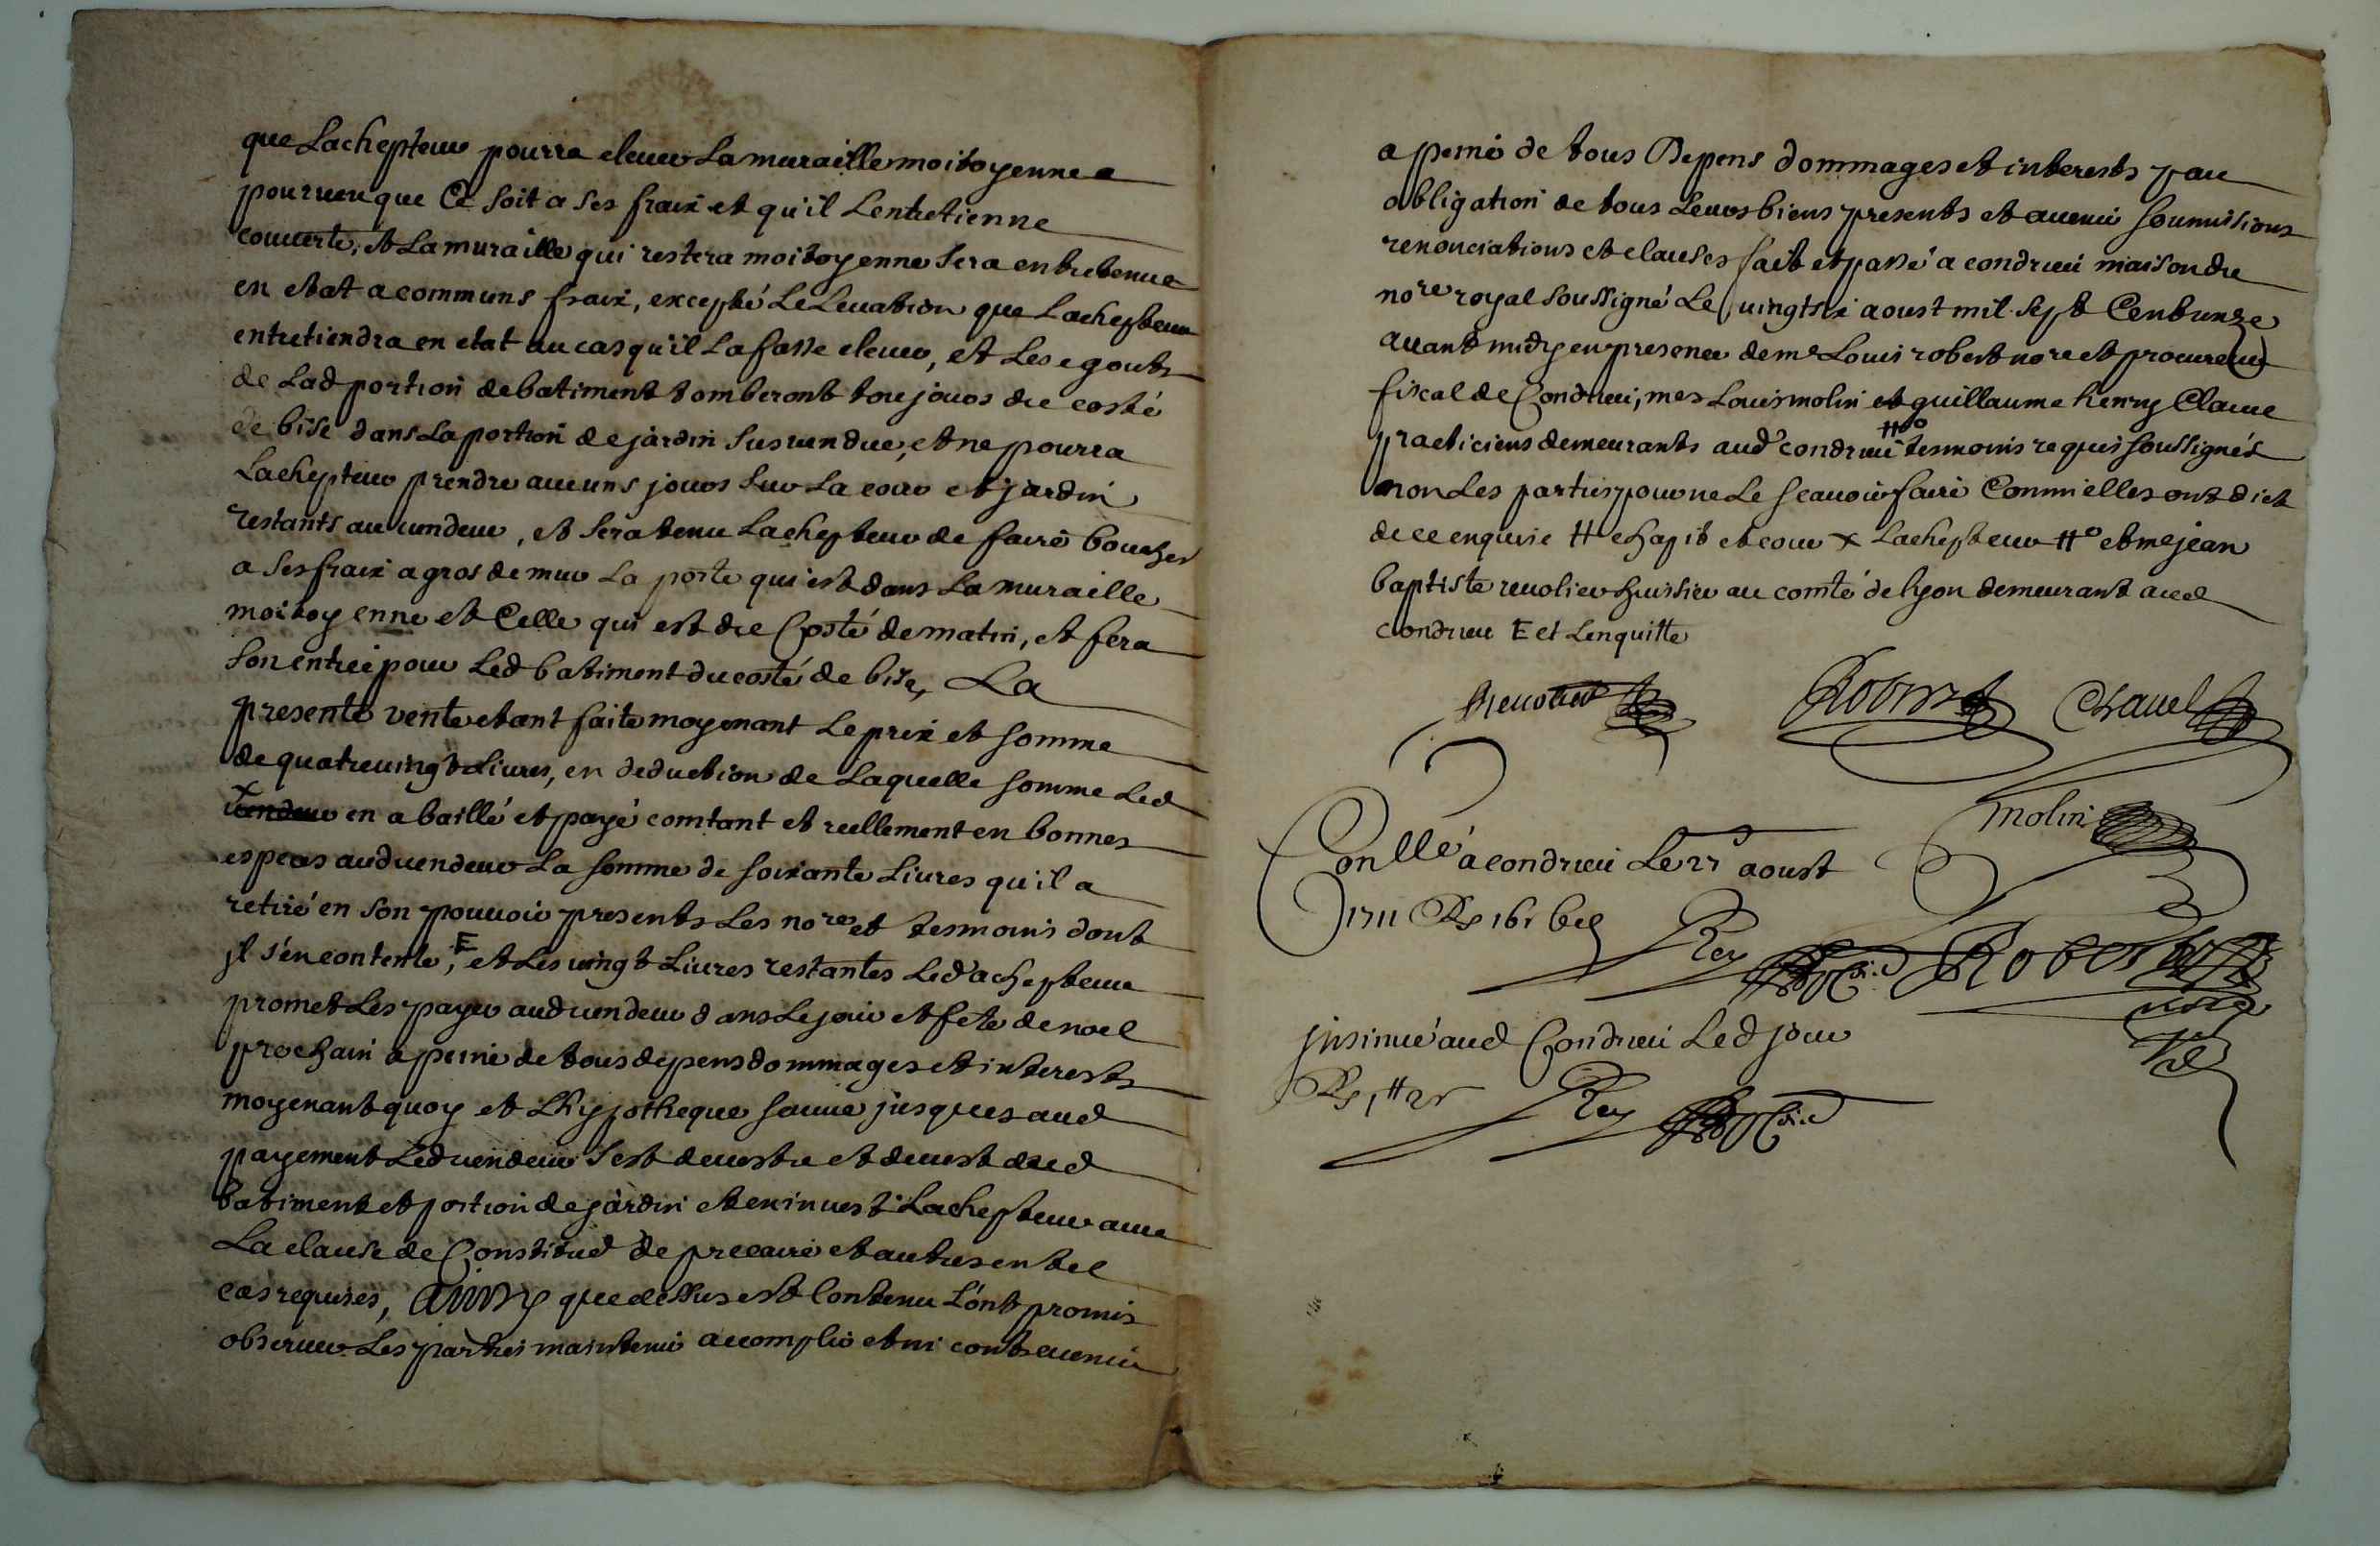 que Lachepteur pourra elever La muraille moitoyenne a
pourveu que Ce soit a ses fraix et qu'il Lentretienne
couverte, et La muraille qui restera moitoyenne sera entretenue
en etat a communs fraix, excepté Lelevation que Lachepteur
entretiendra en etat au cas qu'il La fasse elever, et Les egouts
de Lad portion de batiment tomberont toujours du costé
de bise dans La portion de jardin sus vendue, et ne pourra
Lachepteur prendre aucuns jours sur La cour et jardin
restants au vendeur, et sera tenu Lachepteur de faire boucher
a ses fraix a gros de mur La porte qui est dans La muraille
moitoyenne et Celle qui est du Costé de matin, et fera
son entrée pour Led batiment du costé de bise, La
presente vente etant faite moyenant Le prix et somme
de quatrevingt Livres, en deduction de Laquelle somme Led
x vendeur en a baillé et payé comtant et reellement en bonnes
especes aud vendeur La somme de soixante Livres qu'il a
retiré en son pouvoir presents Les nores et tesmoins dont
jl s'en contente, E et Les vingt Livres restantes Led achepteur
promet Les payer aud vendeur dans Le jour et fete de noel
prochain a peine de tous depens dommages et interests
moyenant quoy et Lhypotheque sauve jusques aud
payement Led vendeur s'est devestu et devest dud
batiment et portion de jardin et en invest Lachepteur avec
La clause de Constitut de precaire et autres en tel
cas requises, ainsy que dessus est Contenu L'ont promis
observer Les parties maintenir accomplir et ni contrevenir
a peine de tous Depens dommages et interests par
obligation de tous Leurs biens presents et avenir soumissions
renonciations et clauses fait et passé a condrieu maison du
nore royal soussigné Le vingtsix aoust mil sept Cent unze
avant midy en presence de me Louis robert nore et procureur
fiscal de Condrieu, mes Louis molin et guillaume henry Claude
practiciens demeurants aud condrieu tesmoins requis soussignés
non Les parties pour ne Le scavoir faire Comm'elles ont dict
de ce enquise # chapit et cour x Lachepteur #o et me jean
baptiste revolier huissier au comté de lyon demeurant aud
condrieu E et Lenquitte
Revolier Robert Chavel
molin
Conllé a condrieu Le 27 aoust
1711 Rs 16s
Rey Robert
nore
Ral
jnsinué aud Condrieu Led jour
Rs 1# 2s Rey